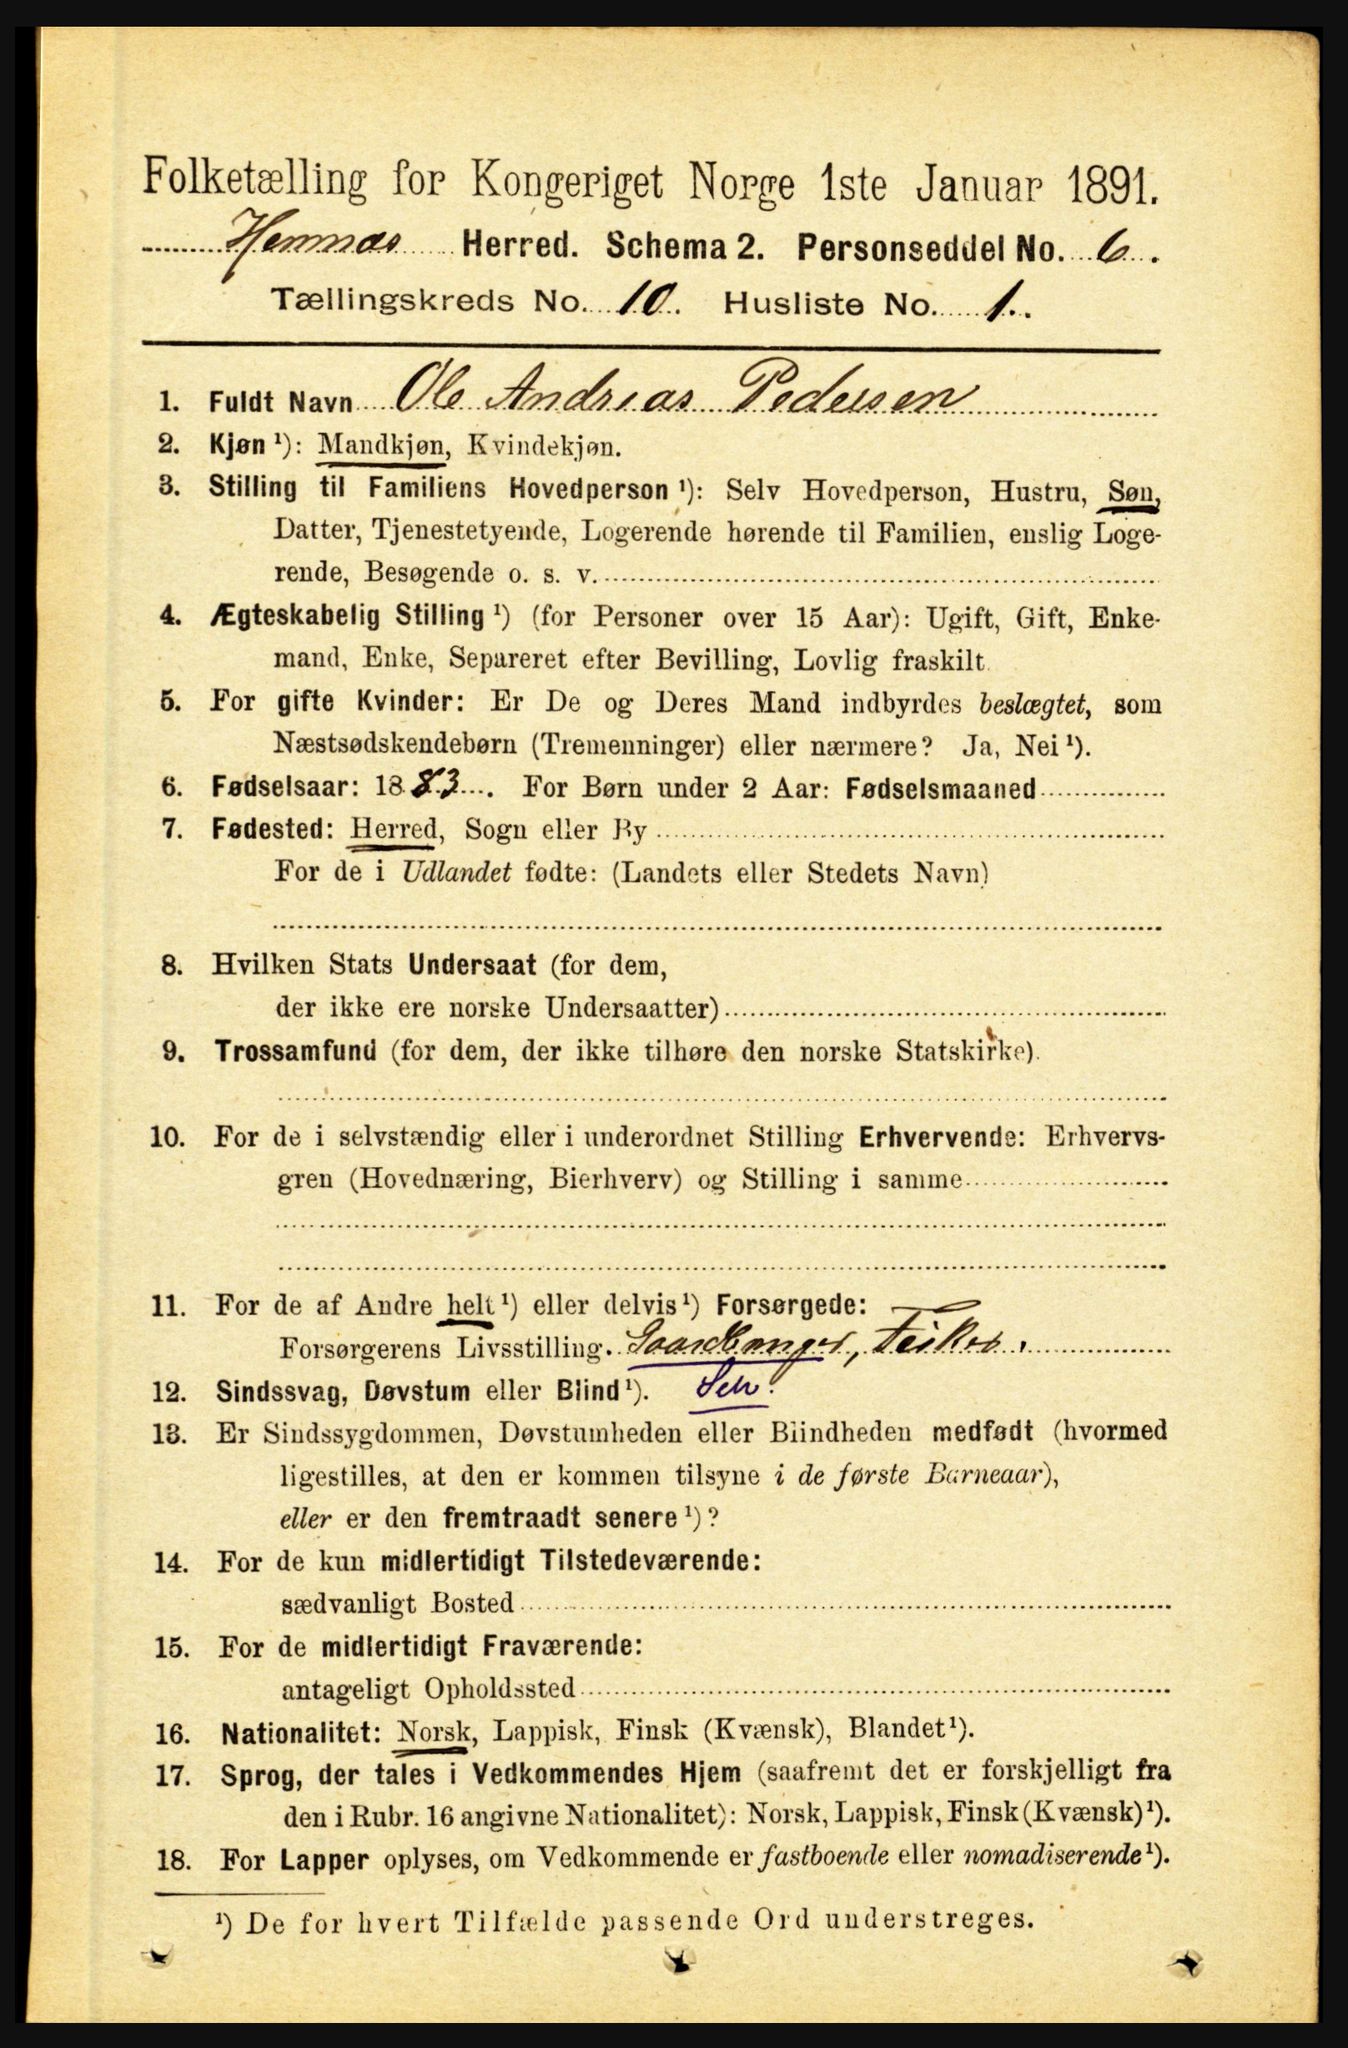 Folketælling for Kongeriget Norge 1ste Januar 1891.
Hemnæs Herred. Schema 2. Personseddel No. 6.
Tællingskreds No. 10. Husliste No. 1.
1. Fuldt Navn Ole Andreas Pedersen
2. Kjøn ¹): Mandkjøn, Kvindekjøn.
3. Stilling til Familiens Hovedperson ¹): Selv Hovedperson, Hustru, Søn,
Datter, Tjenestetyende, Logerende hørende til Familien, enslig Loge-
rende, Besøgende o. s. v.
4. Ægteskabelig Stilling ¹) (for Personer over 15 Aar): Ugift, Gift, Enke-
mand, Enke, Separeret efter Bevilling, Lovlig fraskilt
5. For gifte Kvinder: Er De og Deres Mand indbyrdes beslægtet, som
Næstsødskendebørn (Tremenninger) eller nærmere? Ja, Nei ¹).
6. Fødselsaar: 1883. For Børn under 2 Aar: Fødselsmaaned
7. Fødested: Herred, Sogn eller By
For de i Udlandet fødte: (Landets eller Stedets Navn)
8. Hvilken Stats Undersaat (for dem,
der ikke ere norske Undersaatter)
9. Trossamfund (for dem, der ikke tilhøre den norske Statskirke).
10. For de i selvstændig eller i underordnet Stilling Erhvervende: Erhvervs-
gren (Hovednæring, Bierhverv) og Stilling i samme
11. For de af Andre helt ¹) eller delvis ¹) Forsørgede:
Forsørgerens Livsstilling. Gaardbruger, Fisker.
12. Sindssvag, Døvstum eller Blind ¹). Selv.
13. Er Sindssygdommen, Døvstumheden eller Blindheden medfødt (hvormed
ligestilles, at den er kommen tilsyne i de første Barneaar),
eller er den fremtraadt senere ¹)?
14. For de kun midlertidigt Tilstedeværende:
sædvanligt Bosted
15. For de midlertidigt Fraværende:
antageligt Opholdssted
16. Nationalitet: Norsk, Lappisk, Finsk (Kvænsk), Blandet ¹).
17. Sprog, der tales i Vedkommendes Hjem (saafremt det er forskjelligt fra
den i Rubr. 16 angivne Nationalitet): Norsk, Lappisk, Finsk (Kvænsk) ¹).
18. For Lapper oplyses, om Vedkommende er fastboende eller nomadiserende ¹).
¹) De for hvert Tilfælde passende Ord understreges.